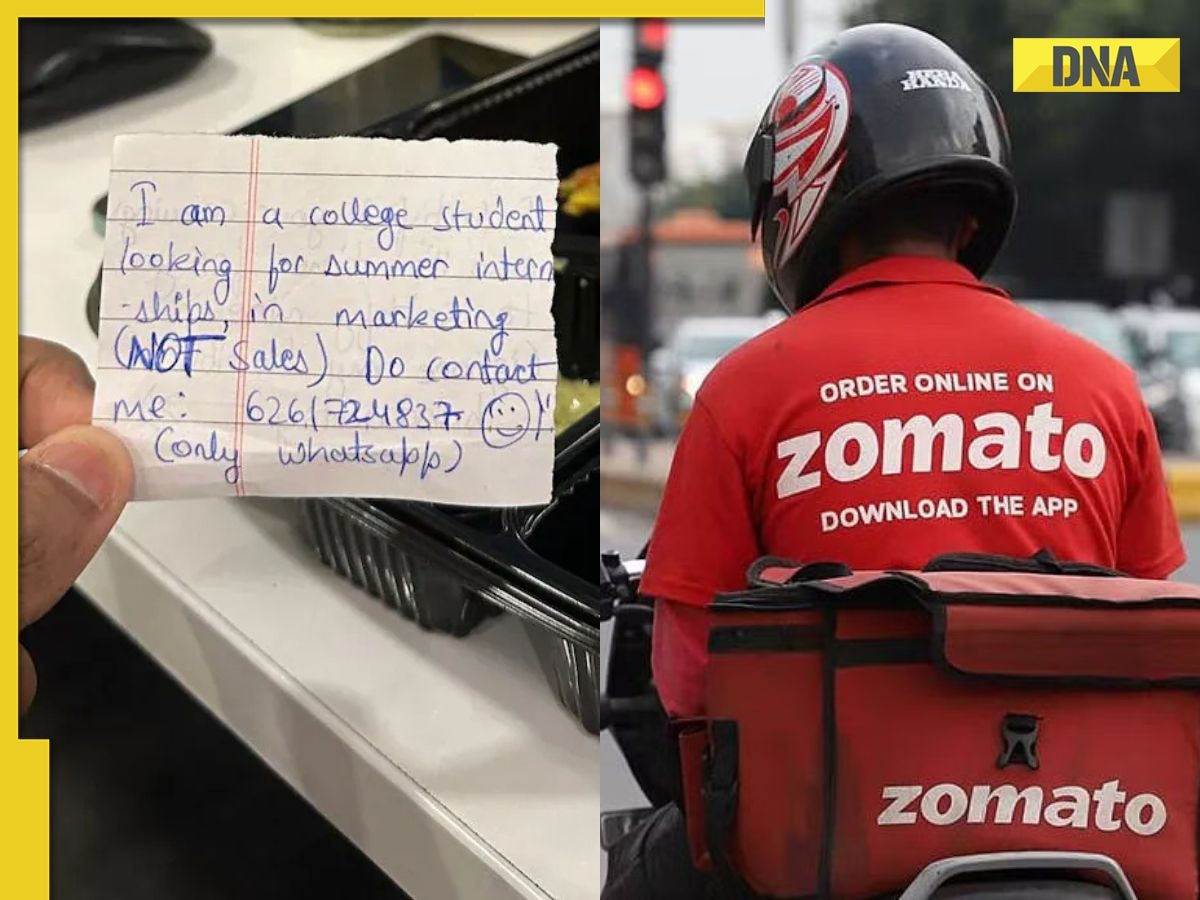 I am a college student
looking for summer intern
-ships, in marketing
(NOT Sales) Do contact
me: 6261724837 ☺
(only whatsapp)
DNA
ORDER ONLINE ON
zomato
DOWNLOAD THE APP
zomato